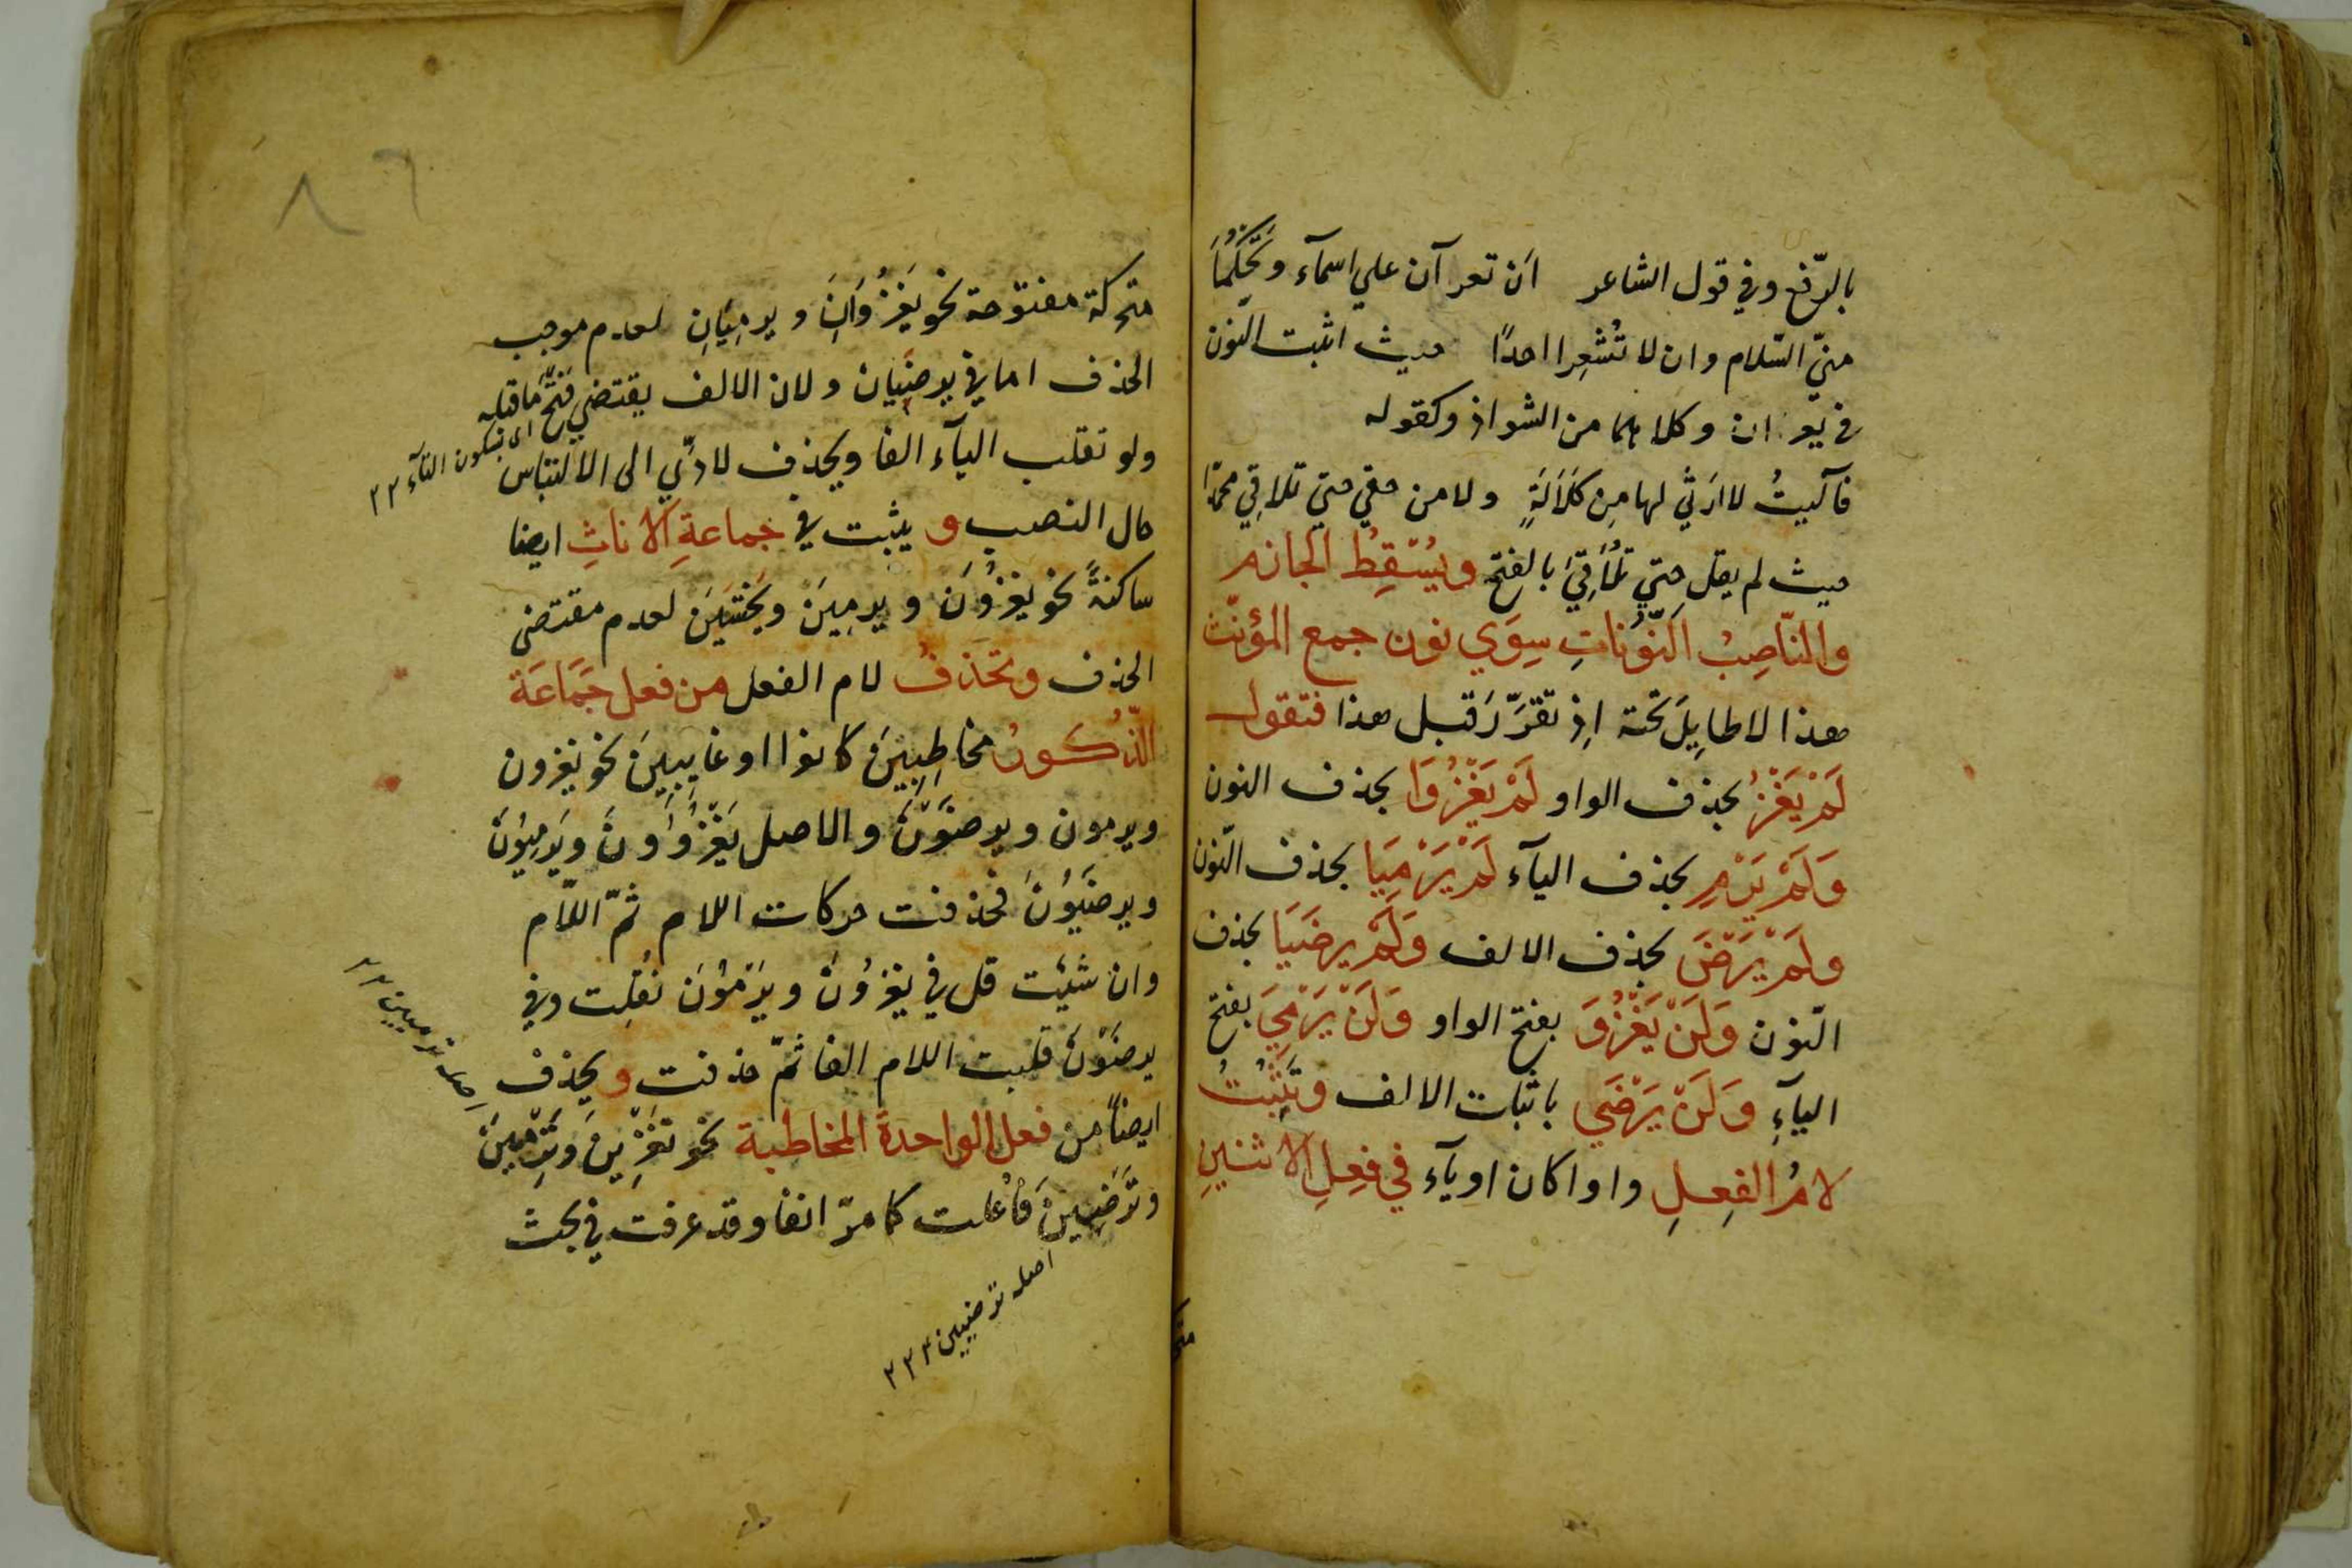 بالرّفع وفي قول الشاعر ان تعرآن علي اسمآء ويحكما
منّي السّلام وان لا تُشْعِرا احدًا حيث اثبت النّون
في وكلاهما من الشواذ وكقوله
فآليتُ لا ارثي لها مِن كَلَالَةٍ ولا من حفي حتي تلاقِي محمّدا
حيث لم يقل حتي تلاقيَ بالفتح ويُسْقِطُ الجازم
والنّاصِبُ النّونَاتِ سِوَي نون جمع المؤنّث
هذا لا طايِلَ تحته اِذ تقرَّرَ قبل هذا فتقول
لَمْ يَغْزُ بحذف الواو لَمْ يَغْزُوَا بحذف النون
وَلَمْ يَرْمِ بحذف اليآء لَمْ يَرْمِيَا بحذف النّون
ولَمْ يَرْضَ بحذف الالف وَلَمْ يرضَيَا بحذف
النّون وَلَنْ يَغْزُوَ بفتح الواو وَلَنْ يَرْمِيَ بفتح
اليآءِ وَلَنْ يَرْضَي باثبات الالف وتَثْبُتُ
لامُ الفِعلِ واوا كان او يآء في فِعلِ الاثنينِ
متحركة مفتوحة نحو يَغْزُوَانِ ويرمِيَانِ لعدم موجب
الحذف اما في يرضَيَان ولان الالف يقتضي فتح ما قبله
ولو تقلب اليآء الفا ويحذف لادّي الى الالتباس
حال النصب و يثبت في جماعةِ الاناثِ ايضا
ساكنةً نحو يغزُونَ ويرمِينَ ويَخْشَينَ لعدم مقتضى
الحذف وتحذفُ لام الفعل من فعل جَمَاعَة
الذّكُورُ مخاطِبِينَ كانوا او غايِبِينَ نحو يغزون
ويرمون ويرضَوْنَ والاصل يَغْزُوُونَ ويَرْمِيُونَ
ويرضَيُونَ فحذفت حركات اللام ثمّ اللّام
وان شئت قل في يغزُونَ ويَرْمُونَ نُقِلت وفي
يرضَوْنَ قلبت اللام الفا ثمّ حذفت و يحذف
ايضاً من فعل الواحدة المخاطبة نحو تَغْزِينَ وتَرْمِينَ
وتَرْضَيْنَ فاعلت كما مرّ انفا وقد عرفت في بحث
اى بسكون اليآء ٢٢
اصله ترميين ٢٢
اصله ترضيين ٢٢٢